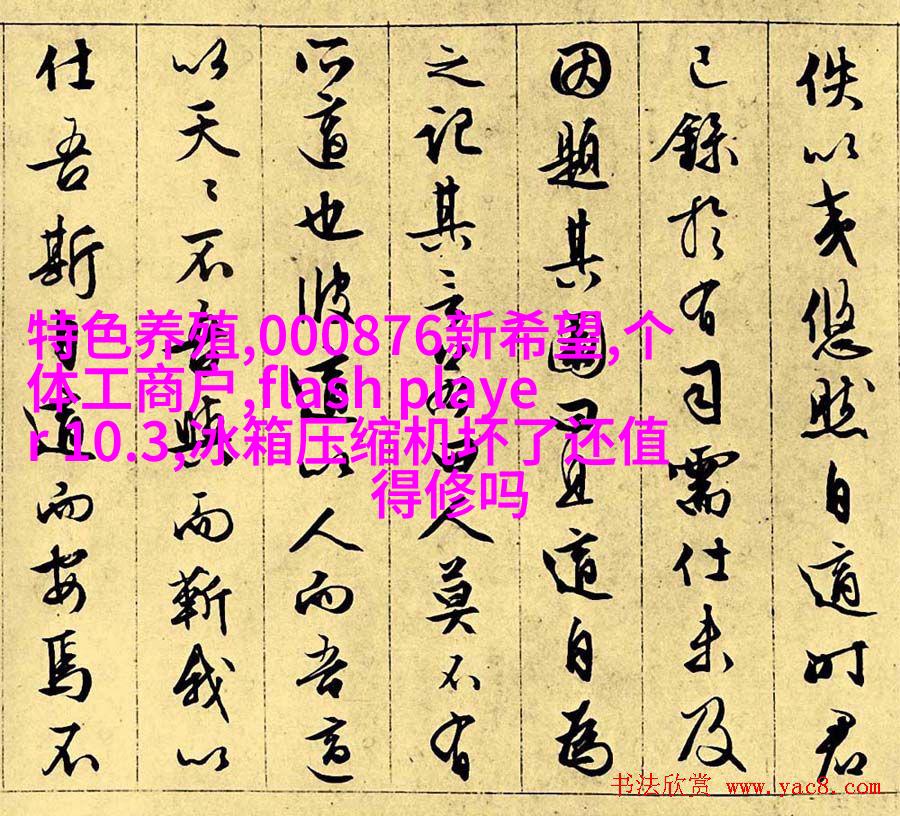 佚以夷悠然自適时君
已錄於有司需仕未及
因題其圖適自為
之記其言人莫不有
所適也彼適以人而吾適
以天〻不吾與而蘄我以
仕吾斯可適而安焉不
特色养殖,000876新希望,个
体工商户,flash playe
r 10.3,冰箱压缩机坏了还值
得修吗
书法欣赏 www.yac8.com